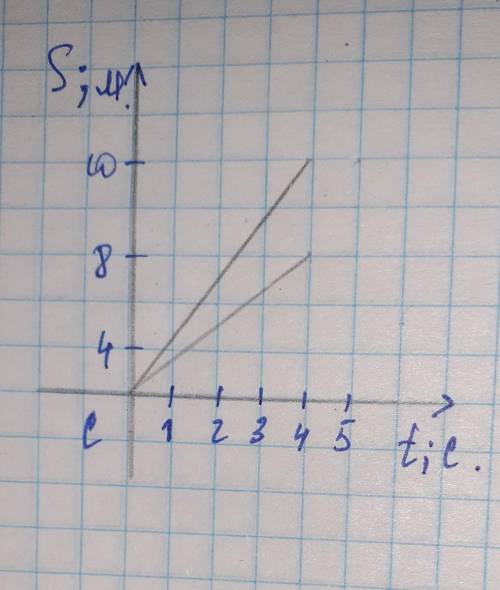 S; м.
10
8
4
0 1 2 3 4 5 t; с.